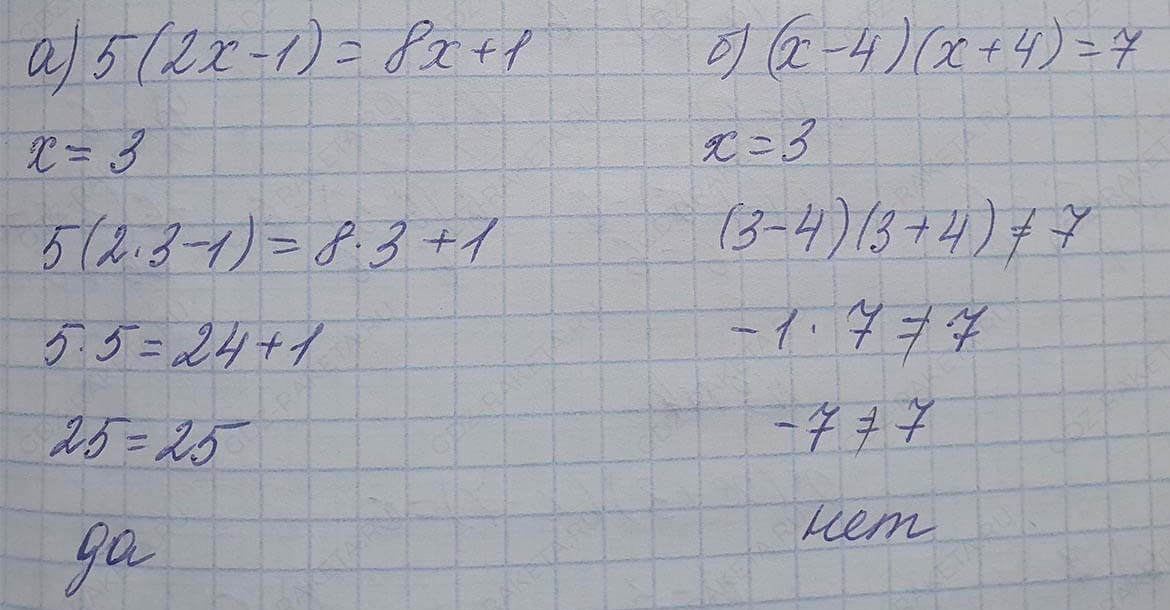 а) 5(2x-1) = 8x+1
x = 3
5(2·3-1) = 8·3+1
5·5 = 24+1
25 = 25
да
б) (x-4)(x+4) = 7
x = 3
(3-4)(3+4) ≠ 7
-1·7 ≠ 7
-7 ≠ 7
нет